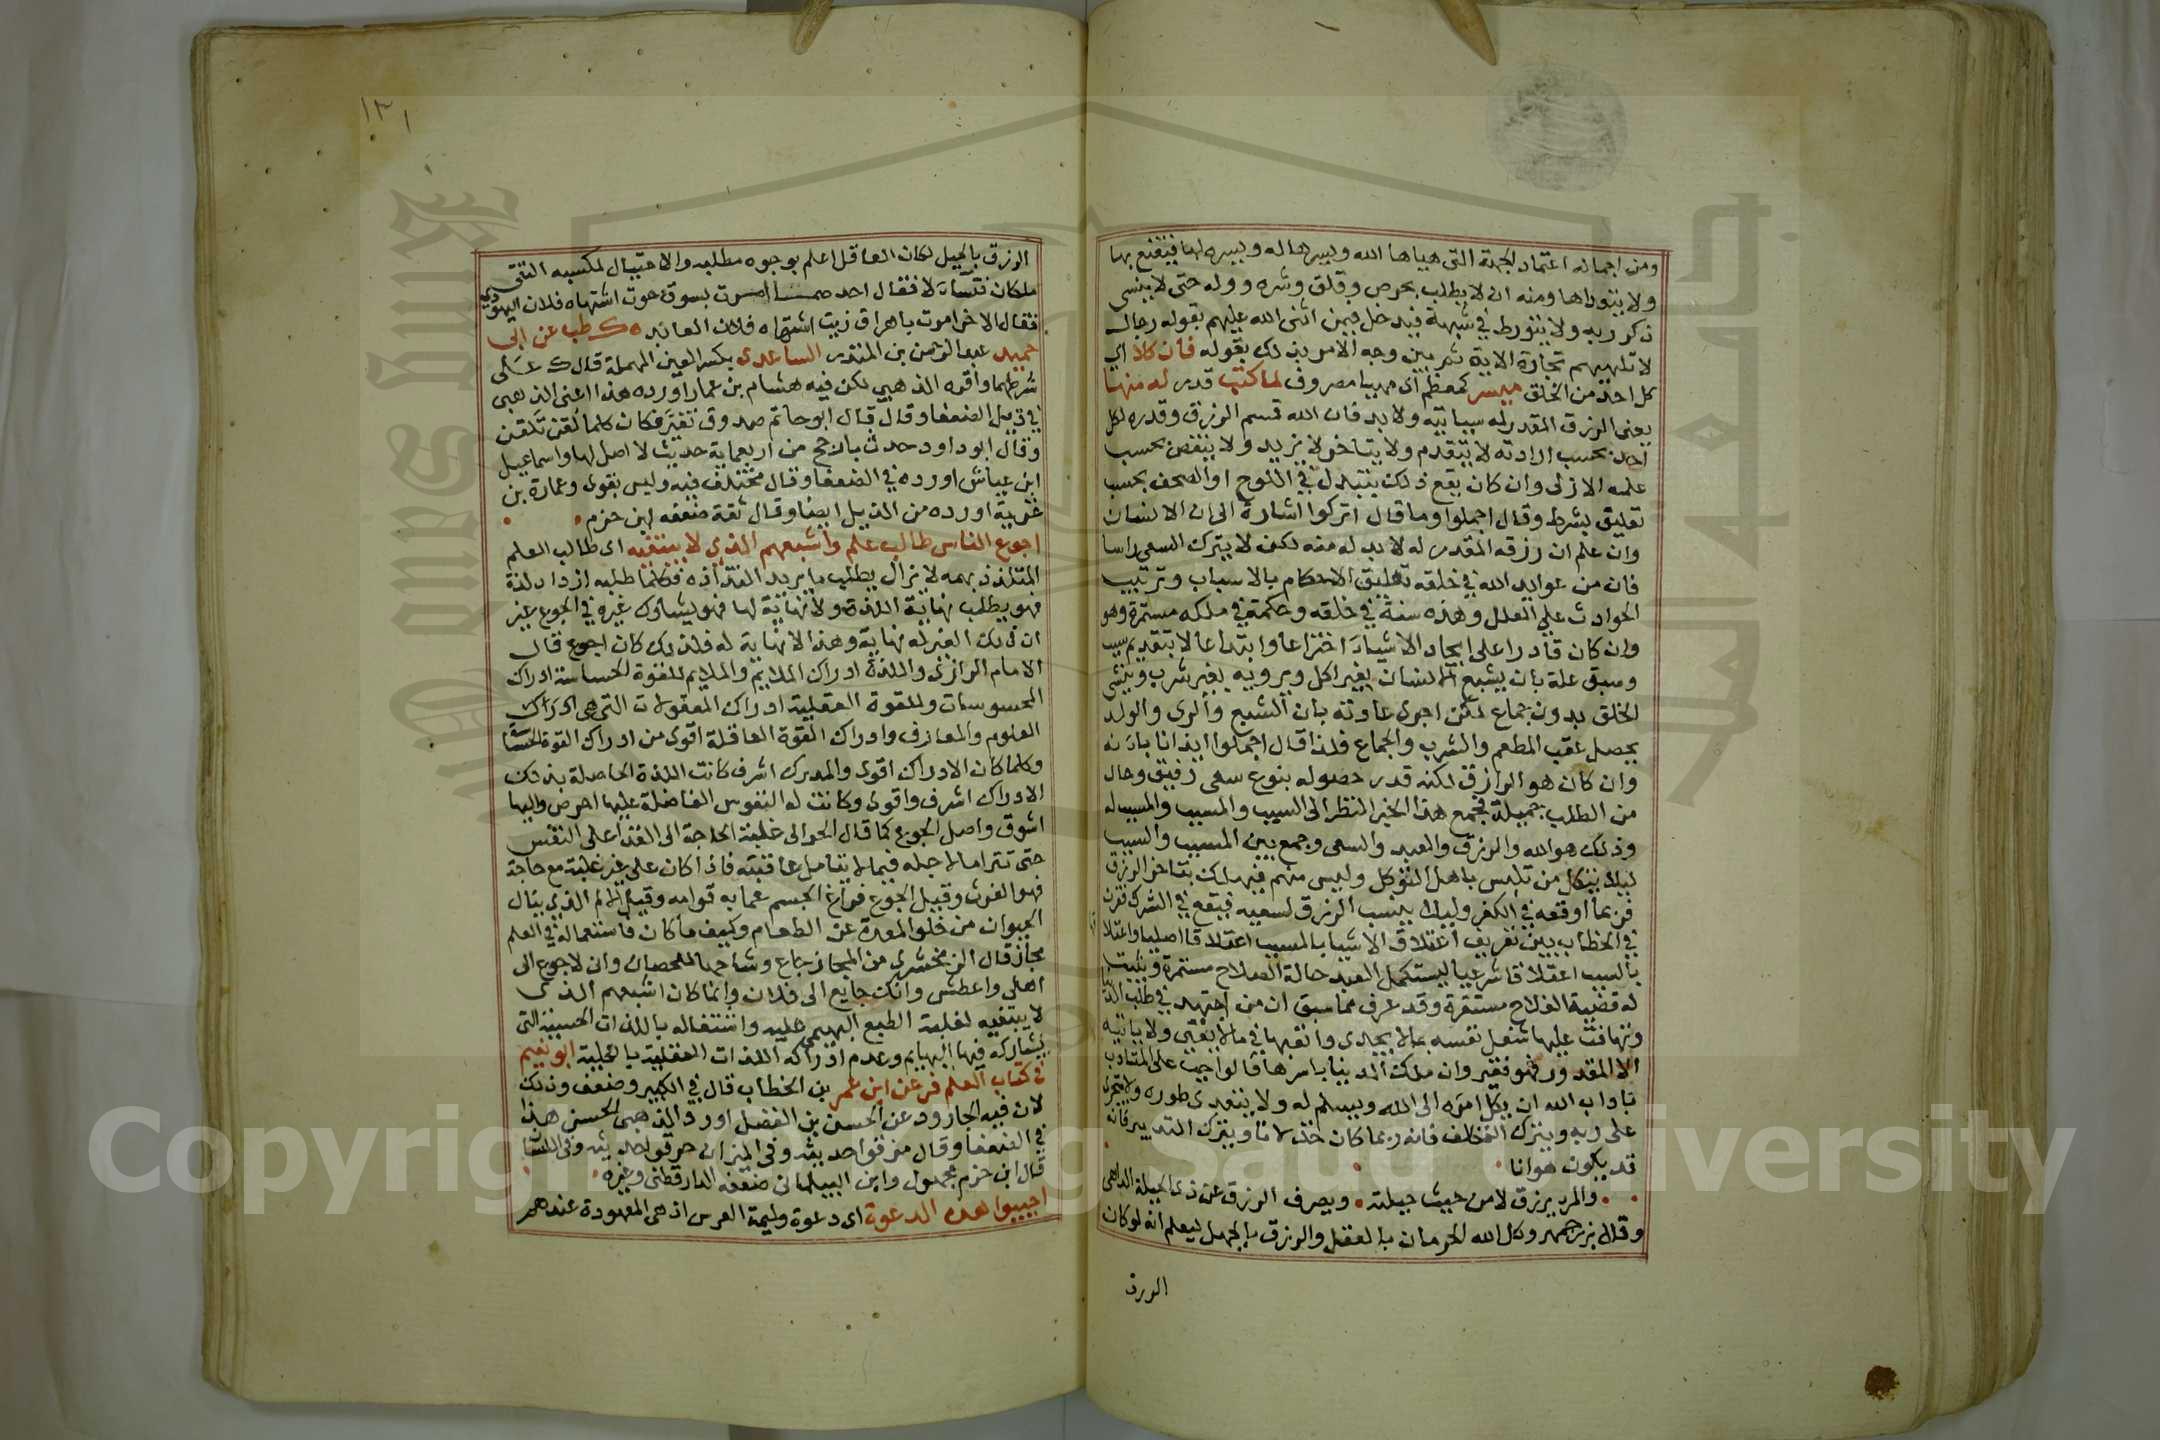 ومن اجماله اعتماد الجهة التى هياها الله ويسرها له ويسره لها فيقنع بها
ولا يتعداها ومنه ان لا يطلب بحرص وقلق وشره ووله حتى لا ينسى
ذكر ربه ولا يتورط في شبهة فيدخل فيمن اثنى الله عليهم بقوله رجال
لا تلهيهم تجارة الاية ثم بين وجه الامر بذلك بقوله فان كلا اي
كل احد من الخلق ميسر كمعظم اى مهيا مصروف لما كتب قدر له منها
يعنى الرزق المقدر له سياتيه ولا بد فان الله قسم الرزق وقدره لكل
احد بحسب ارادته لا يتقدم ولا يتاخر لا يزيد ولا ينقص بحسب
علمه الازلى وان كان يقع ذلك بتبديل في اللوح او الصحف بحسب
تعليق بشرط وقال اجملوا وما قال اتركوا اشارة الى ان الانسان
وان علم ان رزقه المقدر له لا بد له منه لكن لا يترك السعى راسا
فان من عوايد الله في خلقه تعليق الاحكام بالاسباب وترتيب
الحوادث على العلل وهذه سنة في خلقه وحكمة في ملكه مستمرة وهو
وان كان قادرا على ايجاد الاشياء اختراعا وابتداعا لا بتقديم سبب
وسبق علة بان يشبع الانسان بغير اكل ويرويه بغير شرب وينشى
الخلق بدون جماع لكن اجرى عادته بان الشبع والرى والولد
يحصل عقب المطعم والشرب والجماع فلذا قال اجملوا ايذانا بانه
وان كان هو الرازق لكنه قدر حصوله بنوع سعى رفيق وحال
من الطلب جميلة فجمع هذا الخبر النظر الى السبب والمسبب والمسبب له
وذلك هو الله والرزق والعبد والسعى وجمع بين المسبب والسبب
ليلا يتكل من تلبس باهل التوكل وليس منهم فيهلك بتاخر الرزق
فربما اوقعه في الكفر وليلا ينسب الرزق لسعيه فيقع في الشرك فقرن
في الخطاب بين تعريف اعتلاق الاشيا بالمسبب اعتلاقا اصليا واعتلا
بالسبب اعتلاقا شرعيا ليستكمل العبد حالة الصلاح مستمرة ويثبت
له قضية الفلاح مستقرة وقد عرف مما سبق ان من اجتهد في طلب الدنيا
وتهافت عليها شغل نفسه بما لا يجدى واتعبها في ما لا يغنى ولا ياتيه
الا المقدور فهو فقير وان ملك الدنيا باسرها فالواجب على المتادب
باداب الله ان يكل امره الى الله ويسلم له ولا يتعدى طوره ولا يتجرى
على ربه ويترك التكلف فانه ربما كان خذلانا ويترك التدبير فانه
قد يكون هوانا
والمرء يرزق لا من حيث حيلته ويصرف الرزق عن ذى الحيلة الداهى
وقال بزرجمهر وكل الله الحرمان بالعقل والرزق بالجهل ليعلم انه لو كان
الرزق
١٣١
الرزق بالحيل لكان العاقل اعلم بوجوه مطلبه والاحتيال لمكسبه التقى
ملكان فتساءلا فقال احدهما امرت بسوق حوت اشتهاه فلان اليهودى
فقال الاخر امرت باهراق زيت اشتهاه فلان العابد ه ك طب عن ابى
حميد عبد الرحمن بن المنذر الساعدى بكسر العين المهملة قال ك على
شرطهما واقره الذهبى لكن فيه هشام بن عمار اورده هذا اعنى الذهبى
في ذيل الضعفا وقال قال ابو حاتم صدوق تغير فكان كلما لقن تلقن
وقال ابو داود حدث بارجح من اربعماية حديث لا اصل لها واسماعيل
ابن عياش اورده في الضعفا وقال مختلف فيه وليس بقوى وعمارة بن
غزية اورده من الذيل ايضا وقال ثقة ضعفه ابن حزم
اجوع الناس طالب علم واشبعهم الذى لا يبتغيه اى طالب العلم
المتلذذ بهمه لا يزال يطلب ما يريد التذاذه فكلما طلبه ازداد لذة
فهو يطلب نهاية اللذة ولا نهاية لها فهو يشارك غيره في الجوع غير
ان ذلك الغير له نهاية وهذا لا نهاية له فلذلك كان اجوع قال
الامام الرازى واللذة ادراك الملايم والملايم للقوة الحساسة ادراك
المحسوسات وللقوة العقلية ادراك المعقولات التى هى ادراك
العلوم والمعارف وادراك القوة العاقلة اقوى من ادراك القوة الحساسة
وكلما كان الادراك اقوى والمدرك اشرف كانت اللذة الحاصلة بذلك
الادراك اشرف واقوى وكانت له النفوس الفاضلة عليها احرص واليها
اشوق واصل الجوع كما قال الحرالى غلبة الحاجة الى الغذا على النفس
حتى تتراما لاجله فيما لا يتامل عاقبته فاذا كان على غير غلبة مع حاجة
فهو الغرث وقيل الجوع فراغ الجسم عما به قوامه وقيل الالم الذى ينال
الحيوان من خلو المعدة عن الطعام وكيف ما كان فاستعماله في العلم
مجاز قال الزمخشرى من المجاز جاع وشاحها للخمصان وان لاجوع الى
اهلى واعطش وانك جايع الى فلان وانما كان اشبعهم الذى
لا يبتغيه لغلبة الطبع البهيمى عليه واشتغاله باللذات الحسية التى
يشاركه فيها البهايم وعدم ادراكه اللذات العقلية بالكلية ابو نعيم
في كتاب العلم فر عن ابن عمر بن الخطاب قال في الكبير وضعف وذلك
لان فيه الجارود عن الحسن بن الفضل اورد الذهبى الحسن هذا
في الضعفا وقال مزقوا حديثه وفى الميزان حرقوا حديثه وفى اللسان
قال ابن حزم مجهول وابن البيلمانى ضعفه الدارقطنى وغيره
اجيبوا هذه الدعوة اى دعوة وليمة العرس اذ هى المعهودة عندهم
Copyright © King Saud University
King Saud University